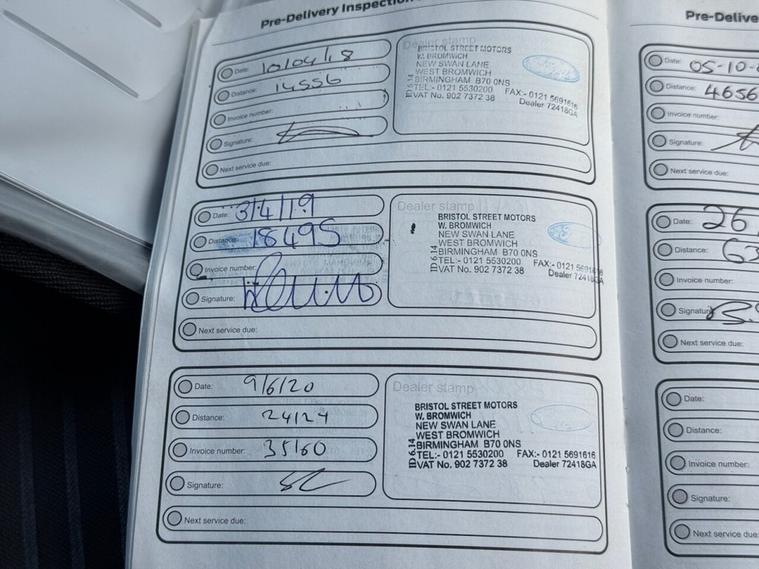 Pre-Delivery Inspection
Date: 10/04/18
Distance: 14556
Invoice number:
Signature:
Next service due:
Dealer stamp
BRISTOL STREET MOTORS
W. BROMWICH
NEW SWAN LANE
WEST BROMWICH
BIRMINGHAM B70 0NS
TEL:- 0121 5530200 FAX:- 0121 5691616
VAT No. 902 7372 38 Dealer 72418GA
ID 6.14
Date: 3/4/19
Distance: 18495
Invoice number:
Signature:
Next service due:
Dealer stamp
BRISTOL STREET MOTORS
W. BROMWICH
NEW SWAN LANE
WEST BROMWICH
BIRMINGHAM B70 0NS
TEL:- 0121 5530200 FAX:- 0121 5691616
VAT No. 902 7372 38 Dealer 72418GA
ID 6.14
Date: 9/6/20
Distance: 24124
Invoice number: 35160
Signature:
Next service due:
Dealer stamp
BRISTOL STREET MOTORS
W. BROMWICH
NEW SWAN LANE
WEST BROMWICH
BIRMINGHAM B70 0NS
TEL:- 0121 5530200 FAX:- 0121 5691616
VAT No. 902 7372 38 Dealer 72418GA
ID 6.14
Pre-Delive
Date: 05-10-
Distance: 4656
Invoice number:
Signature:
Next service due:
Date: 26
Distance: 63
Invoice number:
Signature:
Next service due:
Date:
Distance:
Invoice number:
Signature:
Next service due: